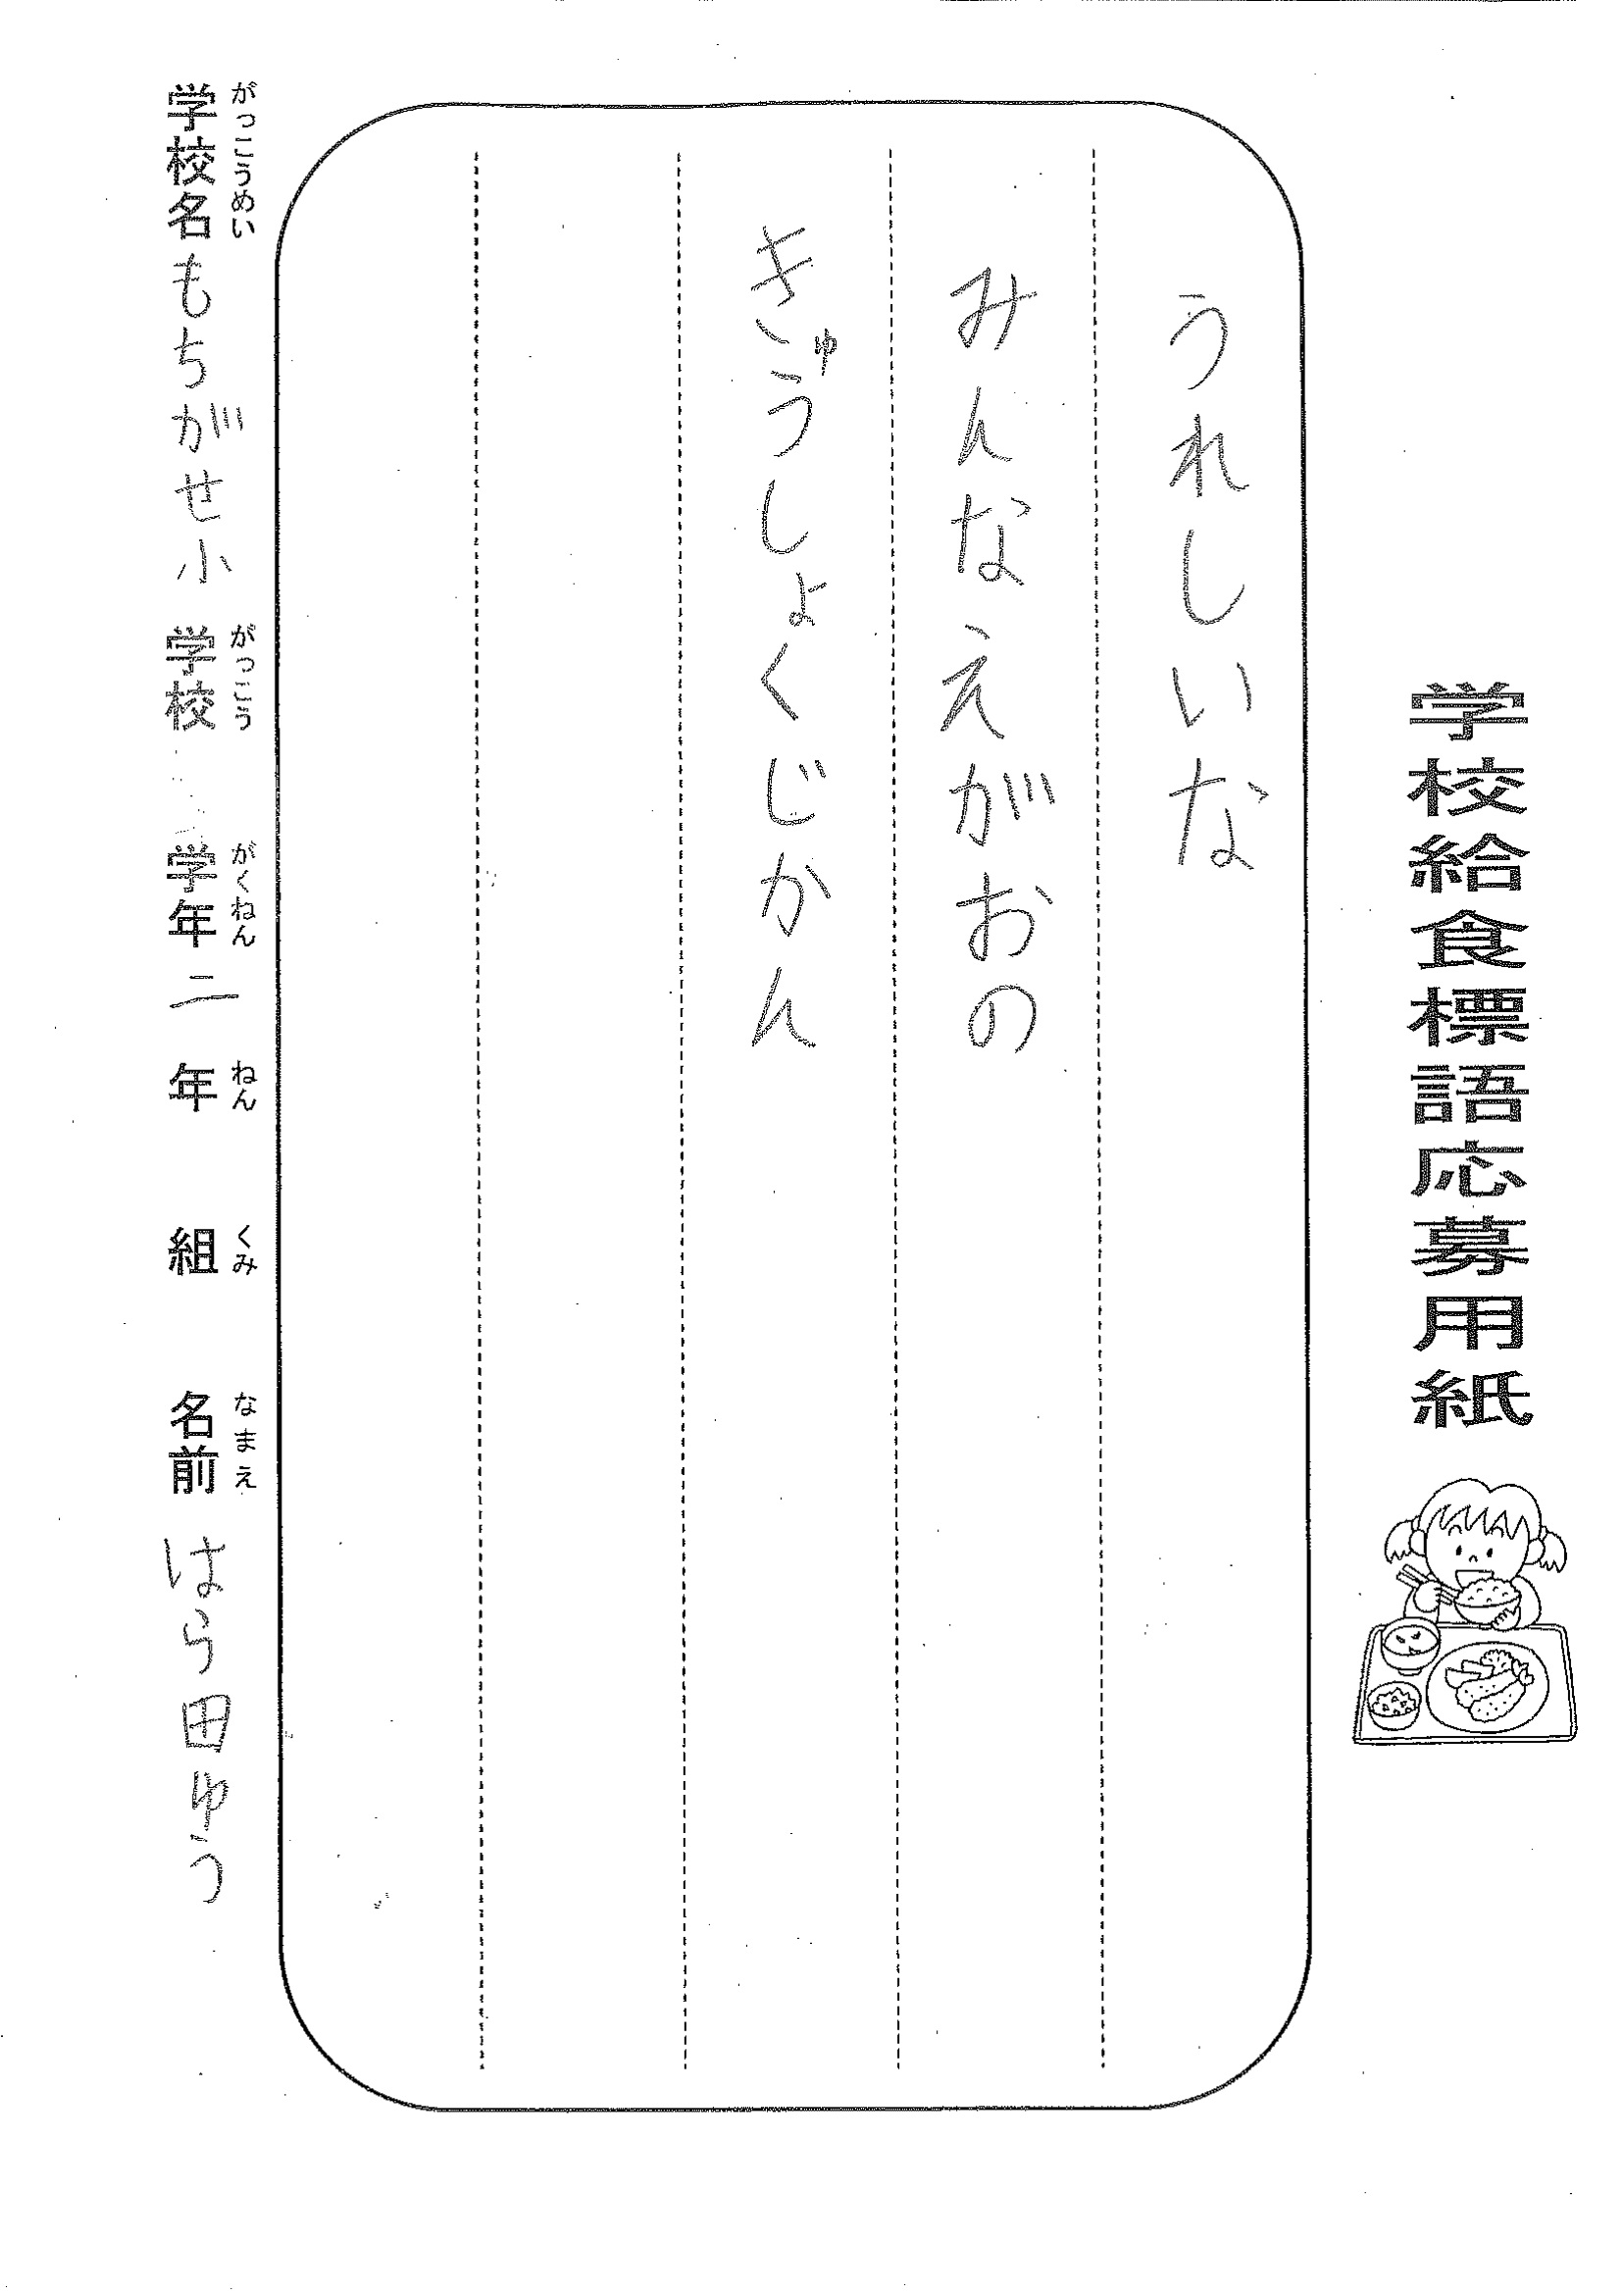 学校給食標語応募用紙
うれしいな
みんなえがおの
きゅうしょくじかん
がっこうめい がっこう がくねん ねん くみ なまえ
学校名もちがせ小学校 学年二年 組 名前 はら田ゆう